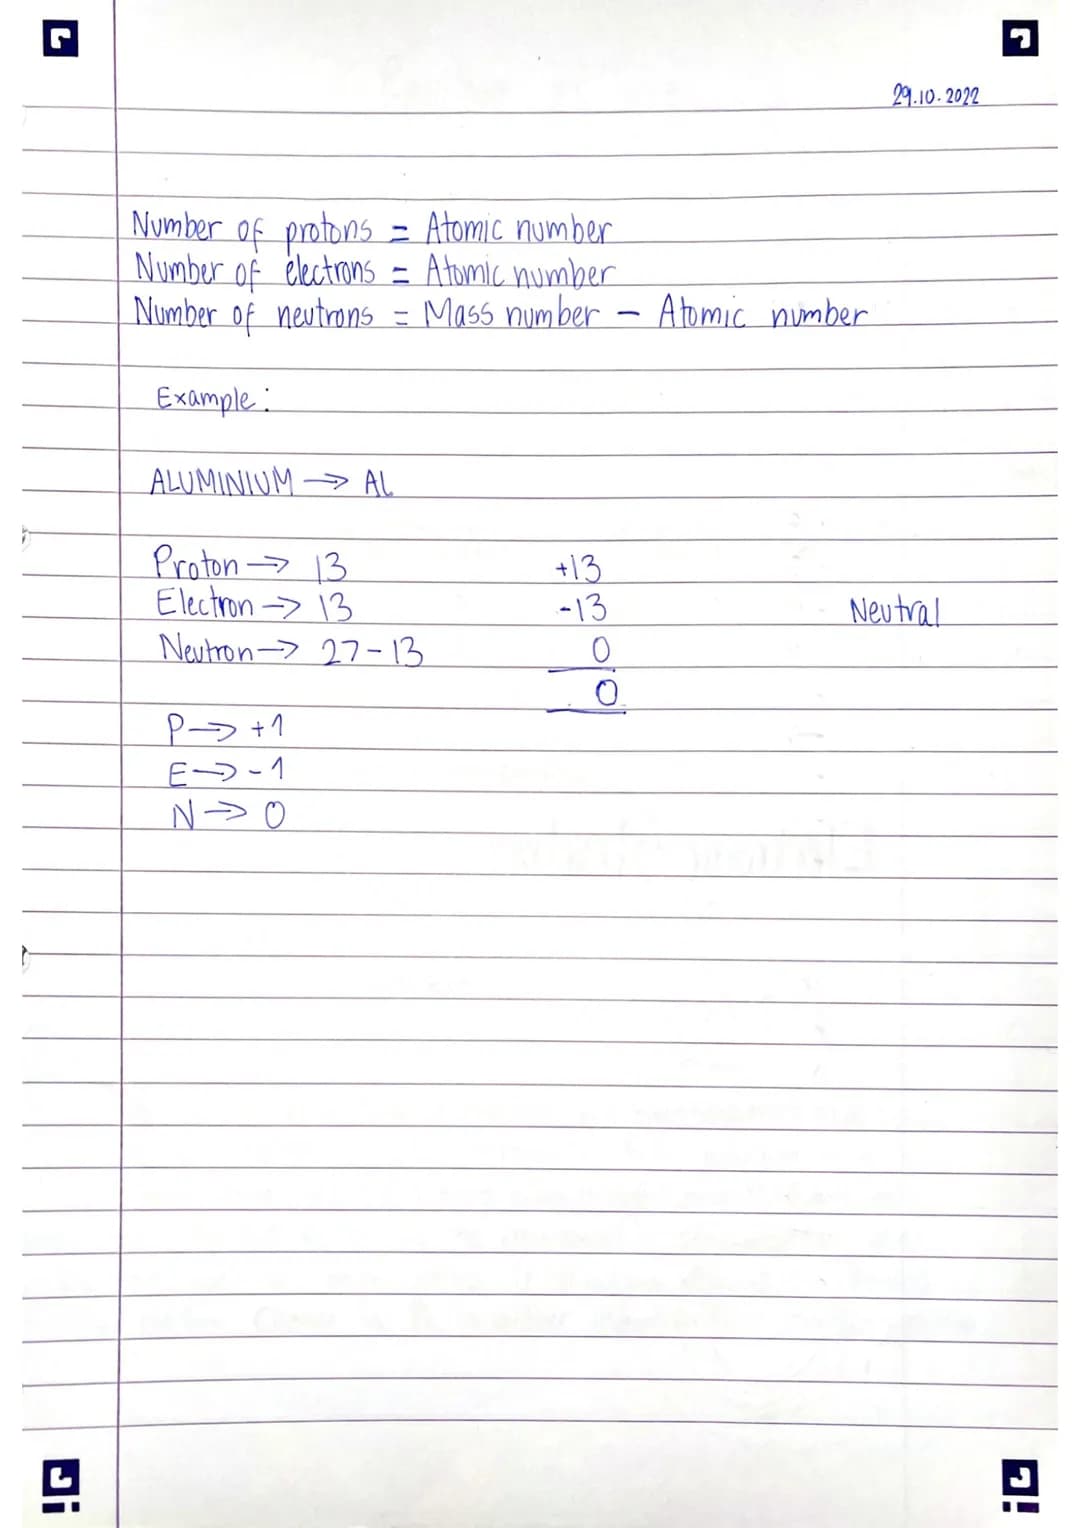 29.10.2022
Number of protons = Atomic number
Number of electrons = Atomic number
Number of neutrons = Mass number - Atomic number
Example:
ALUMINIUM → AL
Proton → 13 +13
Electron → 13 -13 Neutral
Neutron → 27-13 0
0
P → +1
E → -1
N → 0